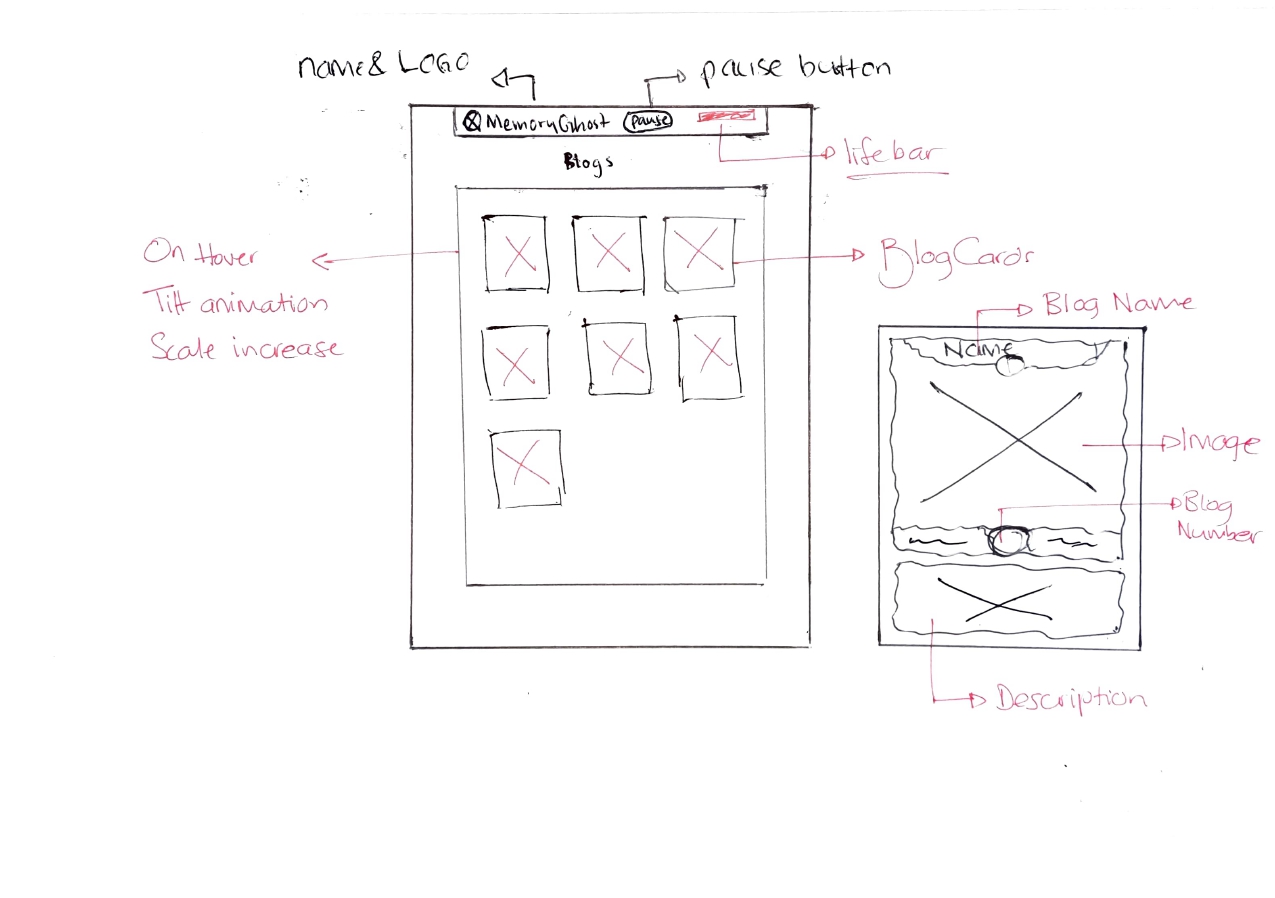 name & LOGO
pause button
MemoryGhost
pause
lifebar
Blogs
On Hover
Tilt animation
Scale increase
BlogCards
Blog Name
Name
Image
Blog
Number
Description